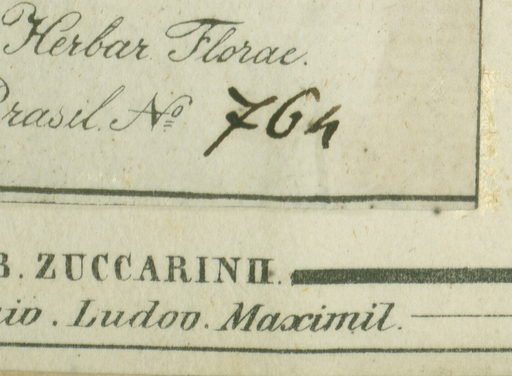 Herbar. Florae.
Brasil. No 764
B. ZUCCARINII.
Ludov. Maximil.